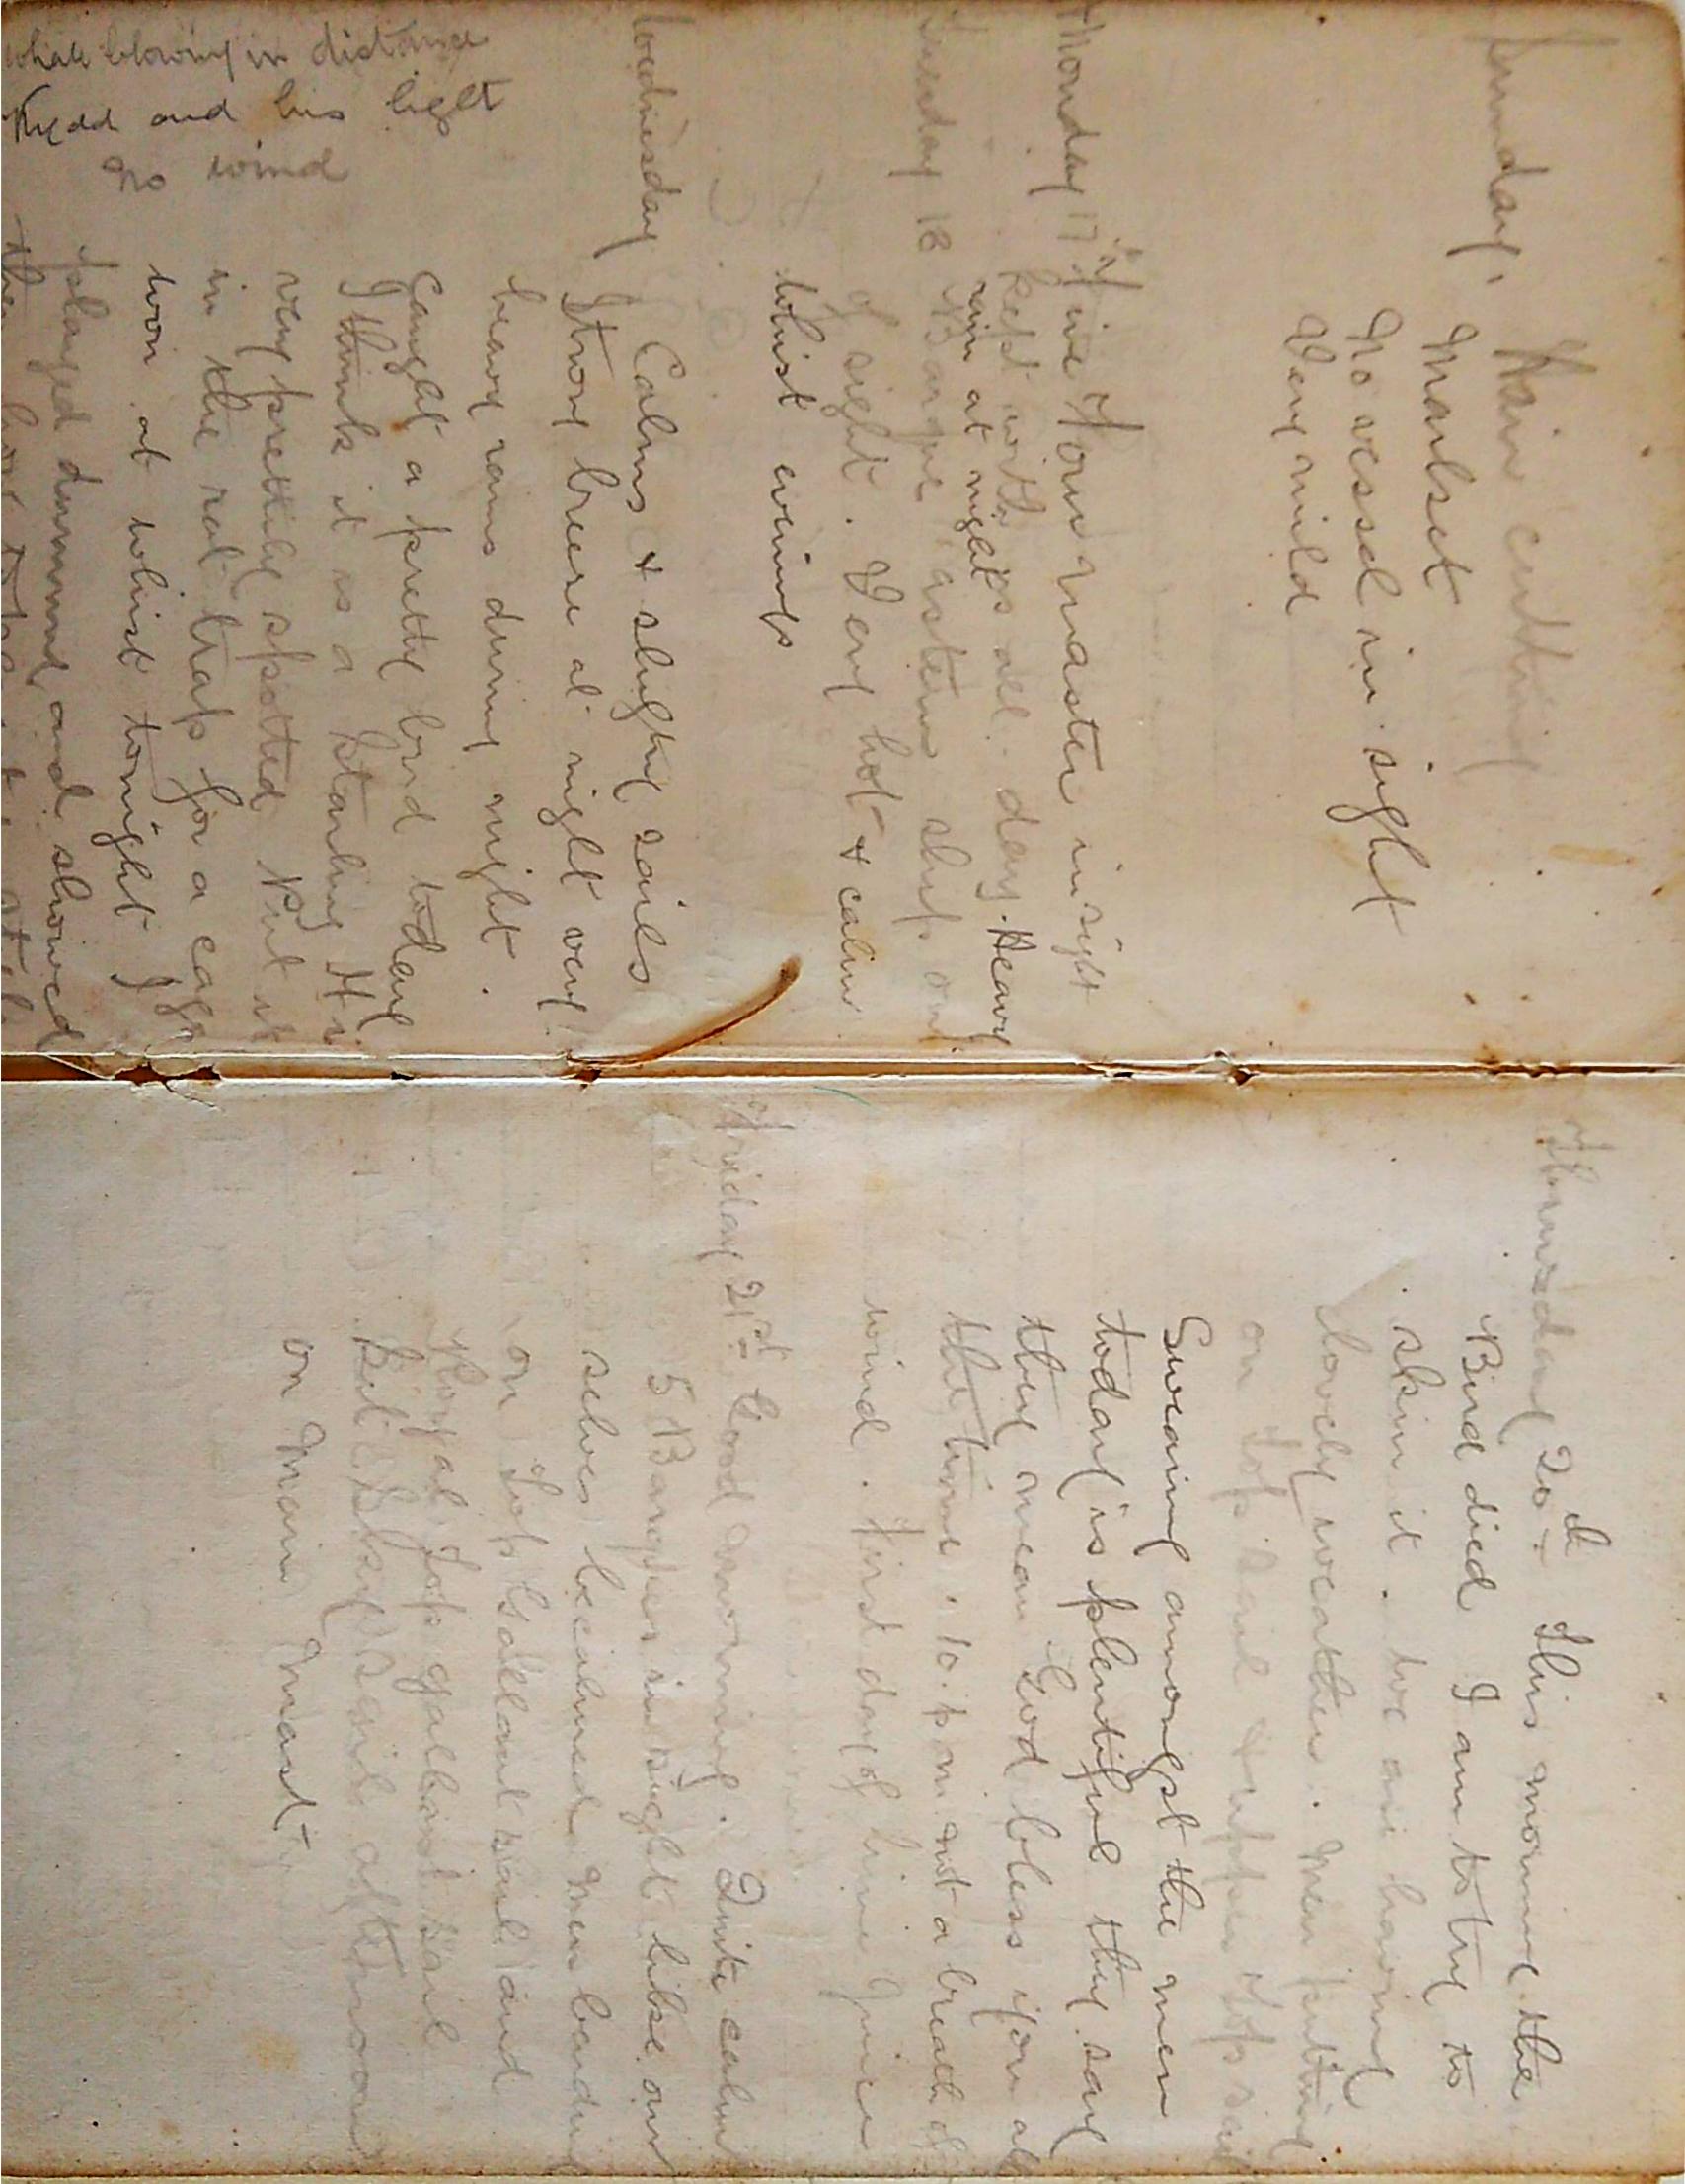 Sunday, Hair cutting
Manlset
No vessel in sight
Very mild
Monday 17 Fine Four master in sight
kept with us all day. Heavy
rain at night
Tuesday 18 Barque astern ship out
of sight. Very hot & calm
whist evenings
Wednesday Calms & slight sails
Strong breeze at night very
heavy rains during night.
Caught a pretty bird today
I think it is a Starling It is
very prettily spotted Put it
in the rat trap for a cage
won at whist tonight I
played dummy and showed
whale blowing in distance
Kydd and his light
No wind
Thursday 20th This morning the
Bird died I am to try to
skin it. We are having
lovely weather. Men putting
on top sail & upper top sail
Swearing amongst the men
today is plentiful they say
they mean God bless you all
the time. 10. p m. not a breath of
wind. First day of lime juice
Friday 21st Good morning. Quite calm
5 Barques in sight like our
selves becalmed. Men bending
on Top Gallant sail and
Royal Top gallant sail
But Skysail afternoon
on Main Mast